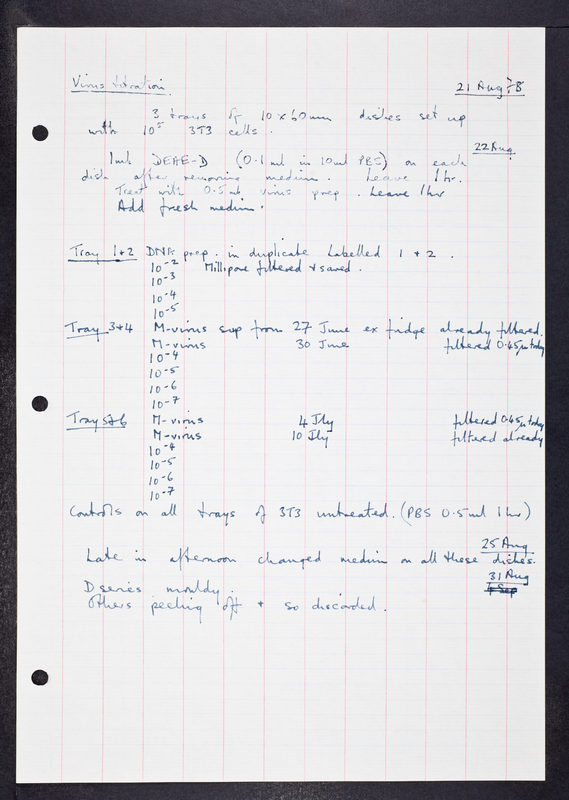 Virus titration. 21 Aug 78
3 trays of 10 x 60mm dishes set up
with 10⁵ 3T3 cells.
22 Aug
1ml DEAE-D (0.1 ml in 10ml PBS) on each
dish after removing medium. Leave 1 hr.
Treat with 0.5ml virus prep. Leave 1hr
Add fresh medium.
Tray 1+2 DNA prep. in duplicate labelled 1 + 2.
10⁻² Millipore filtered + saved.
10⁻³
10⁻⁴
10⁻⁵
Tray 3+4 M-virus sup from 27 June ex fridge already filtered.
M-virus 30 June filtered 0.45µ today
10⁻⁴
10⁻⁵
10⁻⁶
10⁻⁷
Tray 5+6 M-virus 4 Jly filtered 0.45µ today
M-virus 10 Jly filtered already
10⁻⁴
10⁻⁵
10⁻⁶
10⁻⁷
Controls on all trays of 3T3 untreated. (PBS 0.5ml 1hr)
25 Aug
Late in afternoon changed medium on all these dishes.
31 Aug
D series mouldy.
Others peeling off + so discarded.